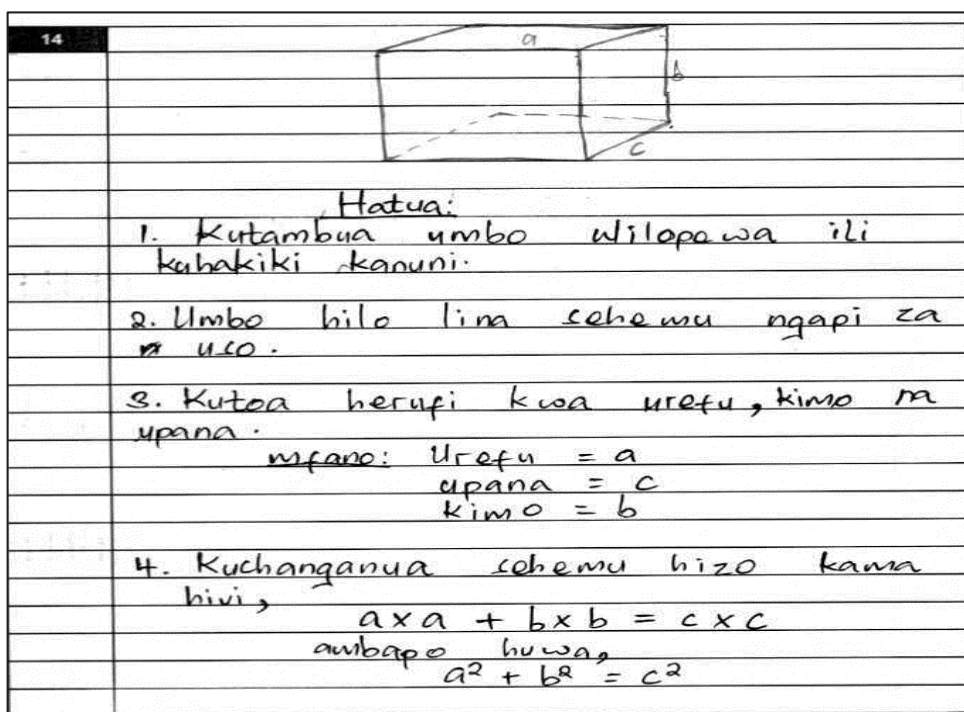 14
a
b
c
Hatua:
1. Kutambua umbo ulilopewa ili
kuhakiki kanuni.
2. Umbo hilo lina sehemu ngapi za
uso.
3. Kutoa herufi kwa urefu, kimo na
upana.
mfano: Urefu = a
upana = c
kimo = b
4. Kuchanganua sehemu hizo kama
hivi,
a x a + b x b = c x c
ambapo huwa,
a² + b² = c²